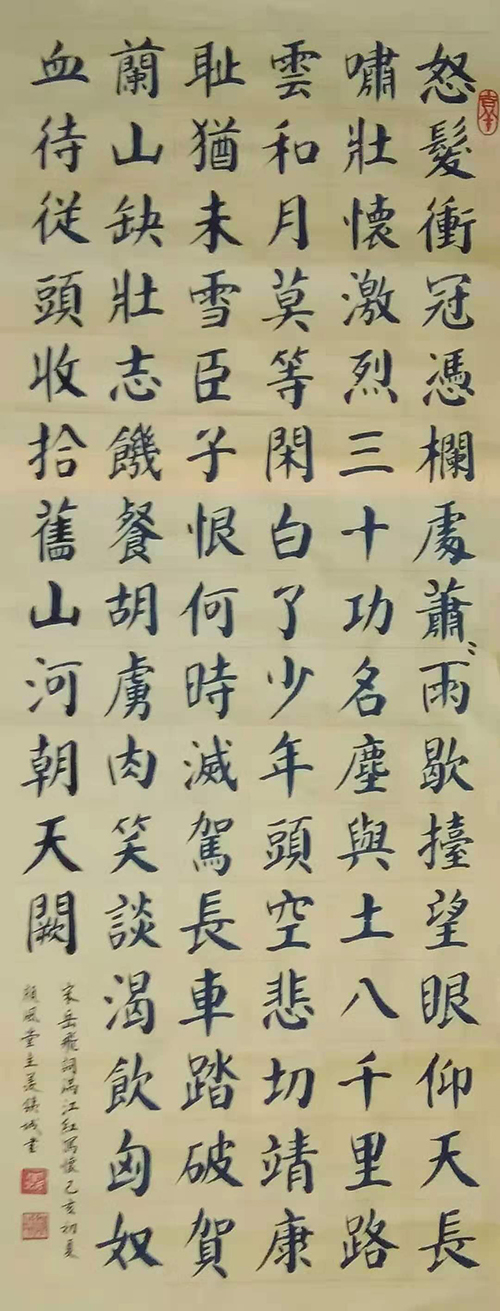 怒髮衝冠憑欄處蕭〻雨歇擡望眼仰天長
嘯壯懷激烈三十功名塵與土八千里路
雲和月莫等閑白了少年頭空悲切靖康
耻猶未雪臣子恨何時滅駕長車踏破賀
蘭山缺壯志饑餐胡虜肉笑談渴飲匈奴
血待從頭收拾舊山河朝天闕
宋岳飛詞滿江紅寫懷己亥初夏
風堂主姜
書